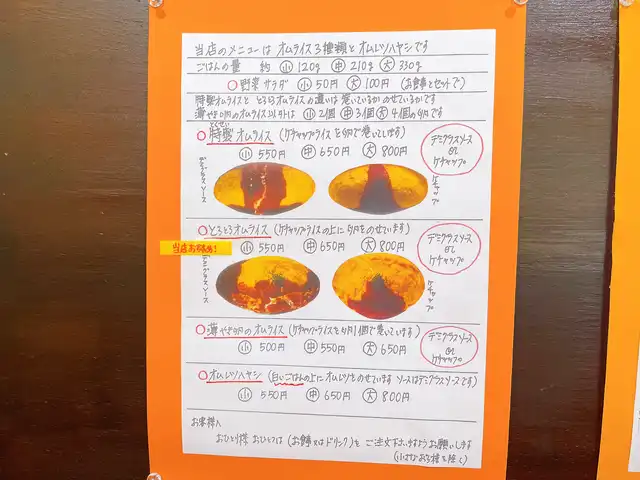 当店のメニューは オムライス3種類と オムレツハヤシです
ごはんの量 約 小 120g 中 210g 大 330g
○野菜サラダ 小 50円 大 100円 (お食事とセットで)
特製オムライスと とろとろオムライスの違いは 巻いているか のせているかです
薄やき卵のオムライス以外は 小 2個 中 3個 大 4個の卵です
とくせい
○特製オムライス (ケチャップライスを卵で巻いています)
小 550円 中 650円 大 800円
デミグラスソース or ケチャップ
デミグラスソース
ケチャップ
○とろとろオムライス (ケチャップライスの上に卵をのせています)
当店お勧め!
小 550円 中 650円 大 800円
デミグラスソース or ケチャップ
デミグラスソース
ケチャップ
○薄やき卵のオムライス (ケチャップライスを卵1個で巻いています)
小 500円 中 550円 大 650円
デミグラスソース or ケチャップ
○オムレツハヤシ (白いごはんの上にオムレツをのせています ソースはデミグラスソースです)
小 550円 中 650円 大 800円
お客様へ
おひとり様 おひとつは (お食事又はドリンク)を ご注文下さいますようお願いします
(小さなお子様を除く)